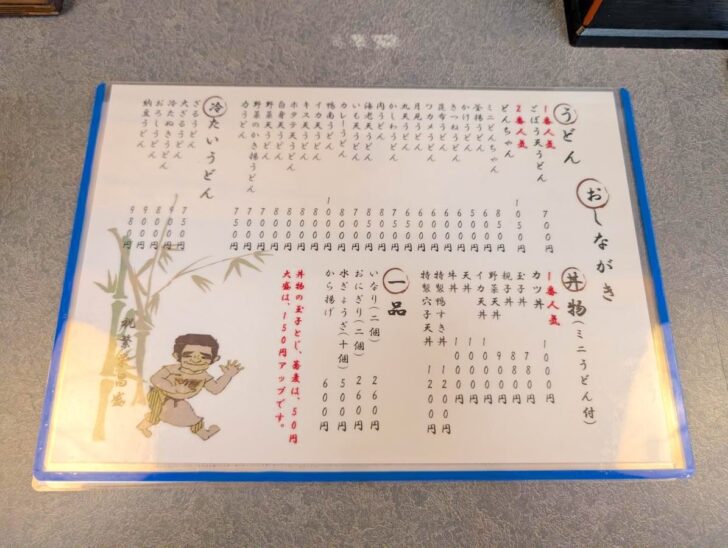 おしながき
うどん
1番人気
ごぼう天うどん 700円
2番人気
どんちゃん 1050円
ミニどんちゃん 850円
釜揚うどん 600円
かけうどん 500円
きつねうどん 600円
昆布うどん 600円
ワカメうどん 600円
月見うどん 600円
丸天うどん 600円
かしわうどん 750円
肉うどん 850円
海老天うどん 850円
いも天うどん 700円
カレーうどん 800円
鴨南うどん 1000円
イカ天うどん 800円
キス天うどん 800円
ホタテ天うどん 800円
白身天うどん 800円
野菜天うどん 700円
野菜のかき揚うどん 700円
力うどん 750円
冷たいうどん
ざるうどん 750円
大ざるうどん 900円
冷たぬきうどん 800円
おろしうどん 900円
納豆うどん 980円
丼物(ミニうどん付)
1番人気
カツ丼 1000円
玉子丼 780円
親子丼 880円
野菜天丼 900円
イカ天丼 1000円
天丼 1000円
牛丼 1000円
特製鴨すき丼 1200円
特製穴子天丼 1200円
一品
いなり(二個) 260円
おにぎり(二個) 260円
水ぎょうざ(十個) 500円
から揚げ 600円
丼物の玉子とじ、蕎麦は、50円
大盛は、150円アップです。
祝繁栄昌盛